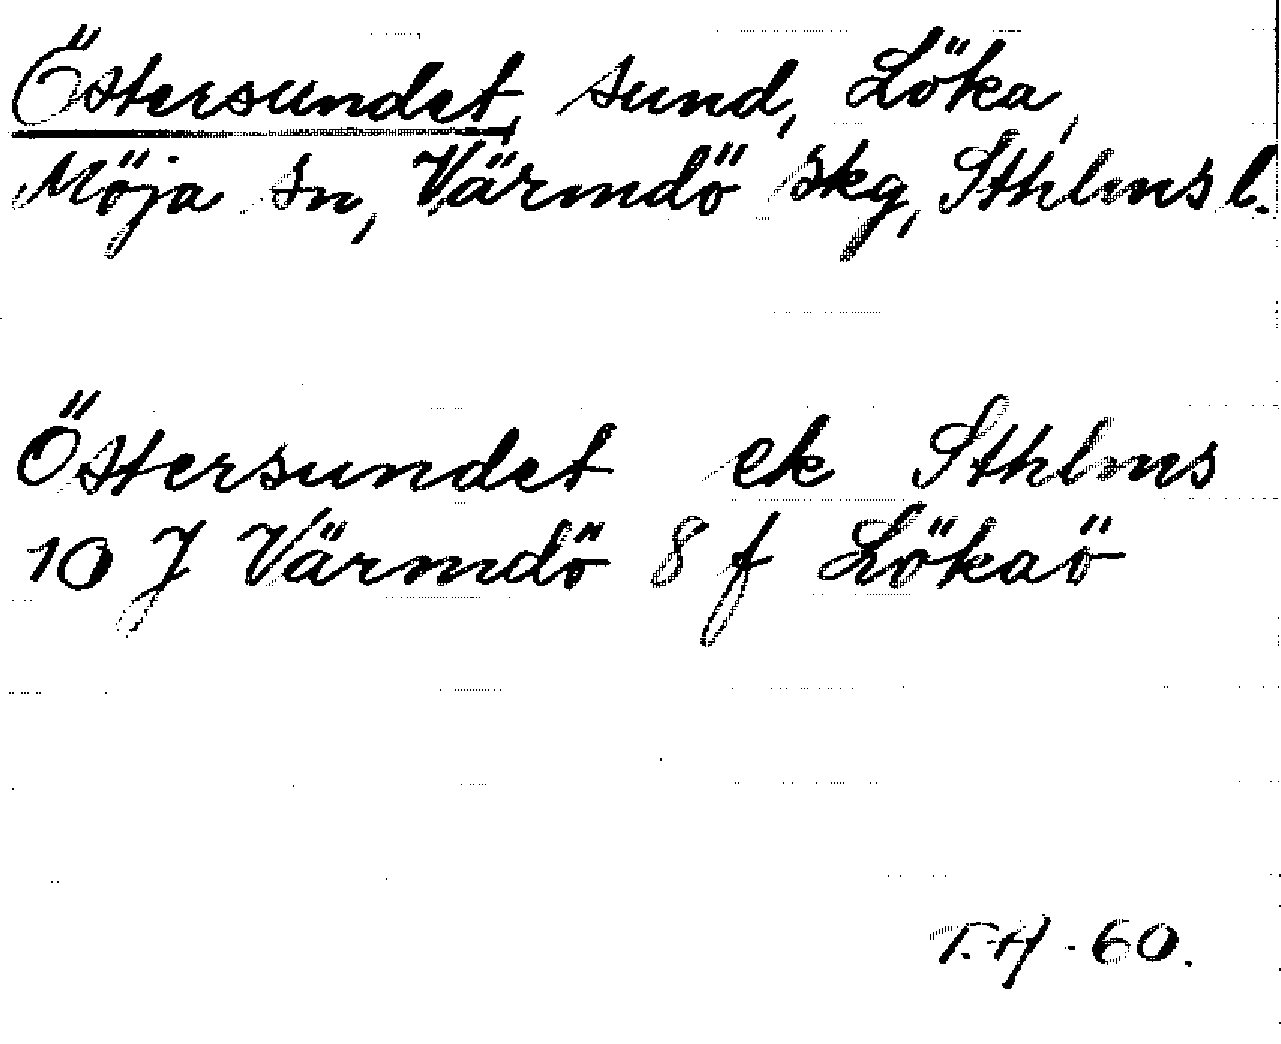 Östersundet, sund, Löka,
Möja sn, Värmdö skg, Sthlms l.
Östersundet ek Sthlms
10 J Värmdö 8 f Lökaö
T.H-60.